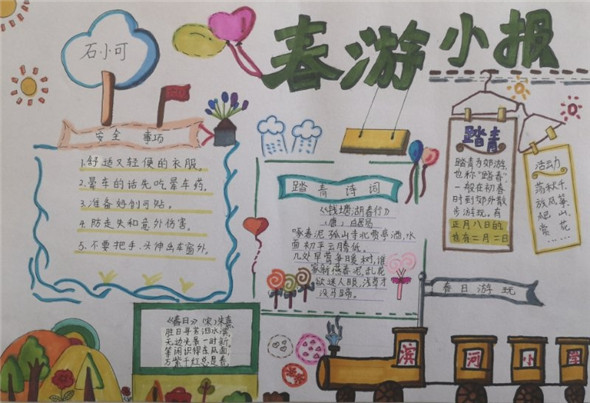 春游小报
石小可
安全
1.舒适又轻便的衣服。
2.晕车的话先吃晕车药。
3.准备好创可贴。
4.防走失和意外伤害。
5.不要把手、头伸出车窗外。
踏青诗词
《钱塘湖春行》
(唐)白居易
孤山寺北贾亭西,水
面初平云脚低。
几处早莺争暖树,谁
家新燕春泥,乱花
欲迷人眼,浅草才
没马蹄。
踏青
踏青
也称"踏春"
一般在初春
时到郊外散
步游玩,有
正月八日的
也有二月二日
活动
放风
春日游玩
《春日》(宋)朱熹
胜日寻芳泗水滨,
无边光景一时新。
等闲识得东风面,
万紫千红总是春。
河小